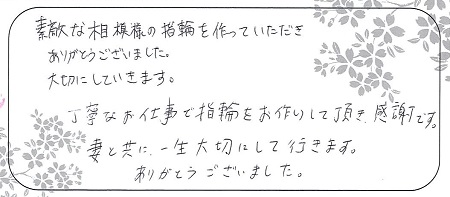 素敵な相模様の指輪を作っていただき
ありがとうございました。
大切にしていきます。
丁寧なお仕事で指輪をお作りして頂き、感謝です。
妻と共に、一生大切にして行きます。
ありがとうございました。